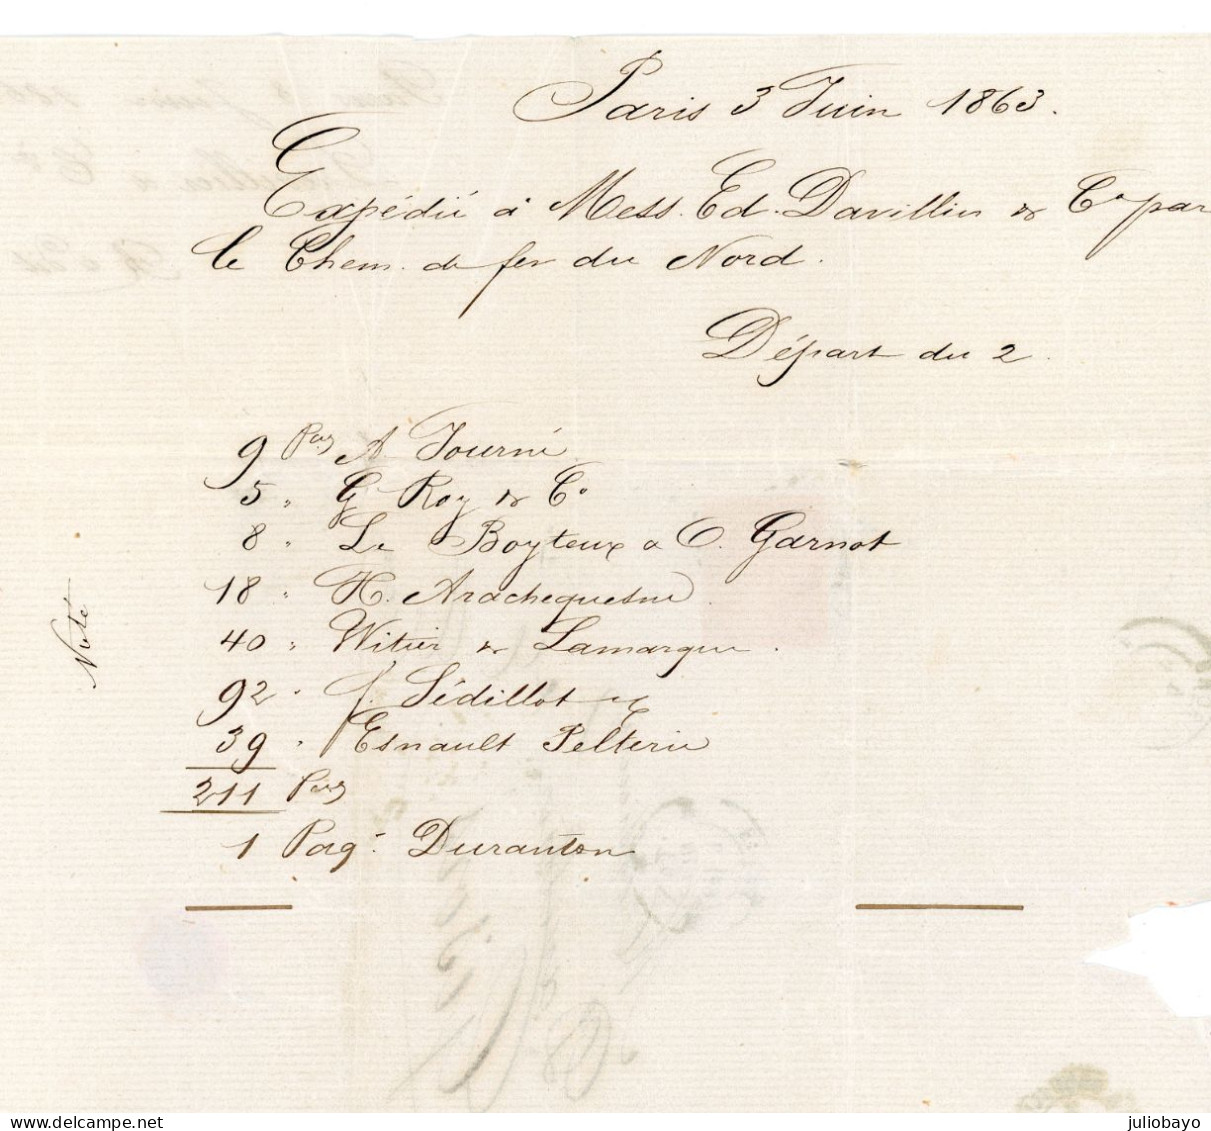 Paris 3 Juin 1863.
Expédié à Mess. Ed. Davillier & Cie par
le Chem. de fer du Nord.
Départ du 2.
9 Pces A Tourné
5 " G Roy & Co
8 " Le Boyteux & O. Garnot
18 " H. Arachequesne
40 " Witier & Lamarque.
92 " J. Sédillot
39 " Esnault Pelterie
211 Pces
1 Paqt Duranton
Note
juliobayo